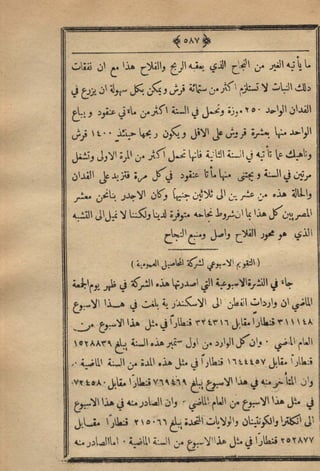 ﴿ ٥٨٧ ﴾
ما يأتيه الغير من النجاح الذي يعقبه الربح والفلاح هذا مع ان نفقات
ذلك النبات لا تستلزم اكثر من ستمائة قرش ويمكن بكل سهولة ان يزرع في
الفدان الواحد ٢٥٠ موزة وتحمل في السنة اكثر من مائتي عنقود و يباع
الواحد منها بعشرة قروش على الاقل ويكون ربحها حينئذ ١٤٠٠ قرش
وناهيك عما تأتيه في السنة الثانية فانها تحمل اكثر من المرة الاولى وتشغل
مرتين في السنة و يجتنى منها مأتا عنقود في كل مرة فتزيد على الفدان
والحالة هذه من عشرين الى ثلاثين جنيهاً وكان الاجدر بنا نحن معشر
المصريين كل هذا بما ان شروط نجاحه متوفرة لدينا ولكننا لا نميل الى التشبه
الذي هو محور الفلاح واصل ومنبع النجاح
(التقويم الاسبوعي لشركة المحاصيل العمومية)
جاء في النشرة الاسبوعية التي اصدرتها هذه الشركة في ظهر يوم الجمعة
الماضي ان واردات القطن الى الاسكندرية بلغت في هذا الاسبوع
٣١١١٤٨ قنطاراً مقابل ٣٢٤٣١٦ قنطاراً في مثل هذا الاسبوع من
العام الماضي ٠ وان كل الوارد من اول ستمبر هذه السنة يبلغ ١٥٢٨٨٣٩
قنطاراً مقابل ١٦٤٤٤٥٧ قنطاراً في مثل هذه المدة من السنة الماضية ٠
وان المتأخر منه في هذا الاسبوع يبلغ ٧٦٩٤٦٨ قنطارا مقابل ٧٢٤٥٨٠
في مثل هذا الاسبوع من العام الماضي ٠ وان الصادر منه في هذا الاسبوع
الى انكلترا والكونتينان والولايات المتحدة يبلغ ٢١٥٠٦٦ قنطاراً مقابل
٢٥٢٨٧٧ قنطارا في مثل هذا الاسبوع من السنة الماضية ٠ اما الصادر منه